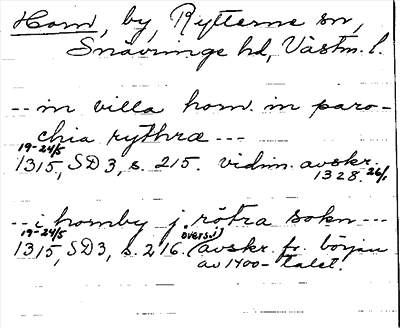 Horn, by, Rytterne sn,
Snävringe hd, Västm. l.
-- in villa horn. in paro-
chia rythræ ---
19-24/5
1315, SD3, s. 215. vidim. avskr.
1328. 26/1
-- i hornby j rötra sokn ---
19-24/5
1315, SD3, s. 216. (avskr. fr. början
övers.)
av 1400-talet.